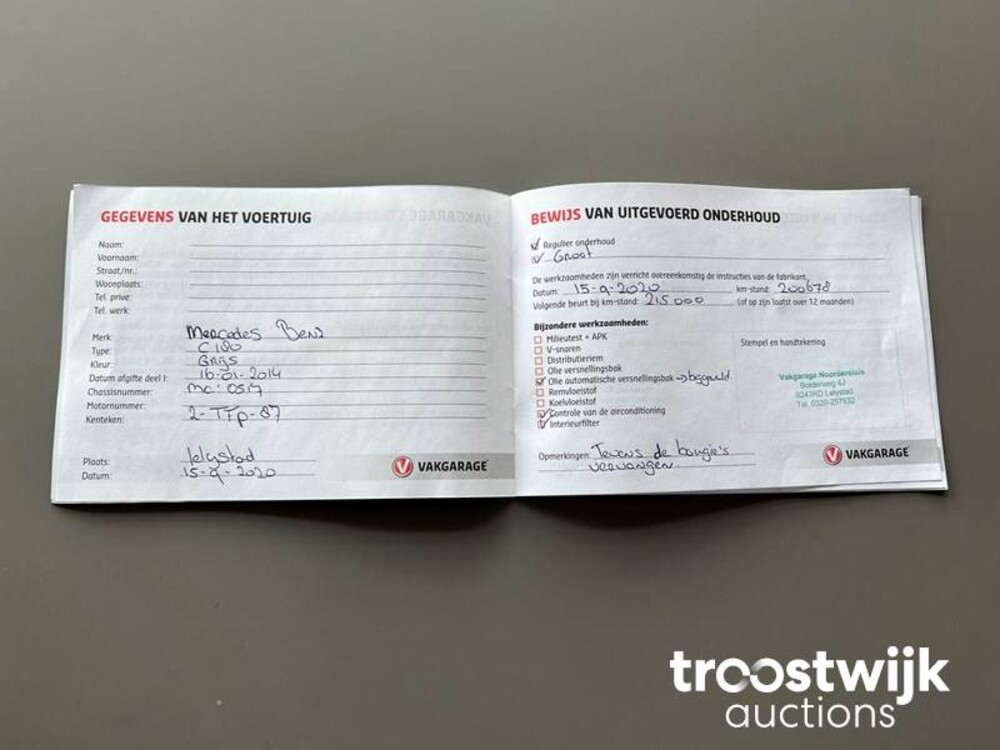 GEGEVENS VAN HET VOERTUIG
Naam:
Voornaam:
Straat/nr.:
Woonplaats:
Tel. prive:
Tel. werk:
Merk: Mercedes Benz
Type: C180
Kleur: Grijs
Datum afgifte deel I: 16-01-2014
Chassisnummer:
Motornummer:
Kenteken: 2-TTP-87
Plaats: Lelystad
Datum: 15-9-2020
VAKGARAGE
BEWIJS VAN UITGEVOERD ONDERHOUD
Regulier onderhoud
Groot
De werkzaamheden zijn verricht overeenkomstig de instructies van de fabrikant.
Datum: 15-9-2020 km-stand: 200678
Volgende beurt bij km-stand: 215.000 (of op zijn laatst over 12 maanden)
Bijzondere werkzaamheden:
Milieutest + APK
V-snaren
Distributieriem
Olie versnellingsbak
Olie automatische versnellingsbak
Remvloeistof
Koelvloeistof
Controle van de airconditioning
Interieurfilter
Stempel en handtekening
Vakgarage Noordersluis
Bolderweg 4J
8243RD Lelystad
Tel. 0320-257932
Opmerkingen: Tevens de bougie's
vervangen
VAKGARAGE
troostwijk
auctions